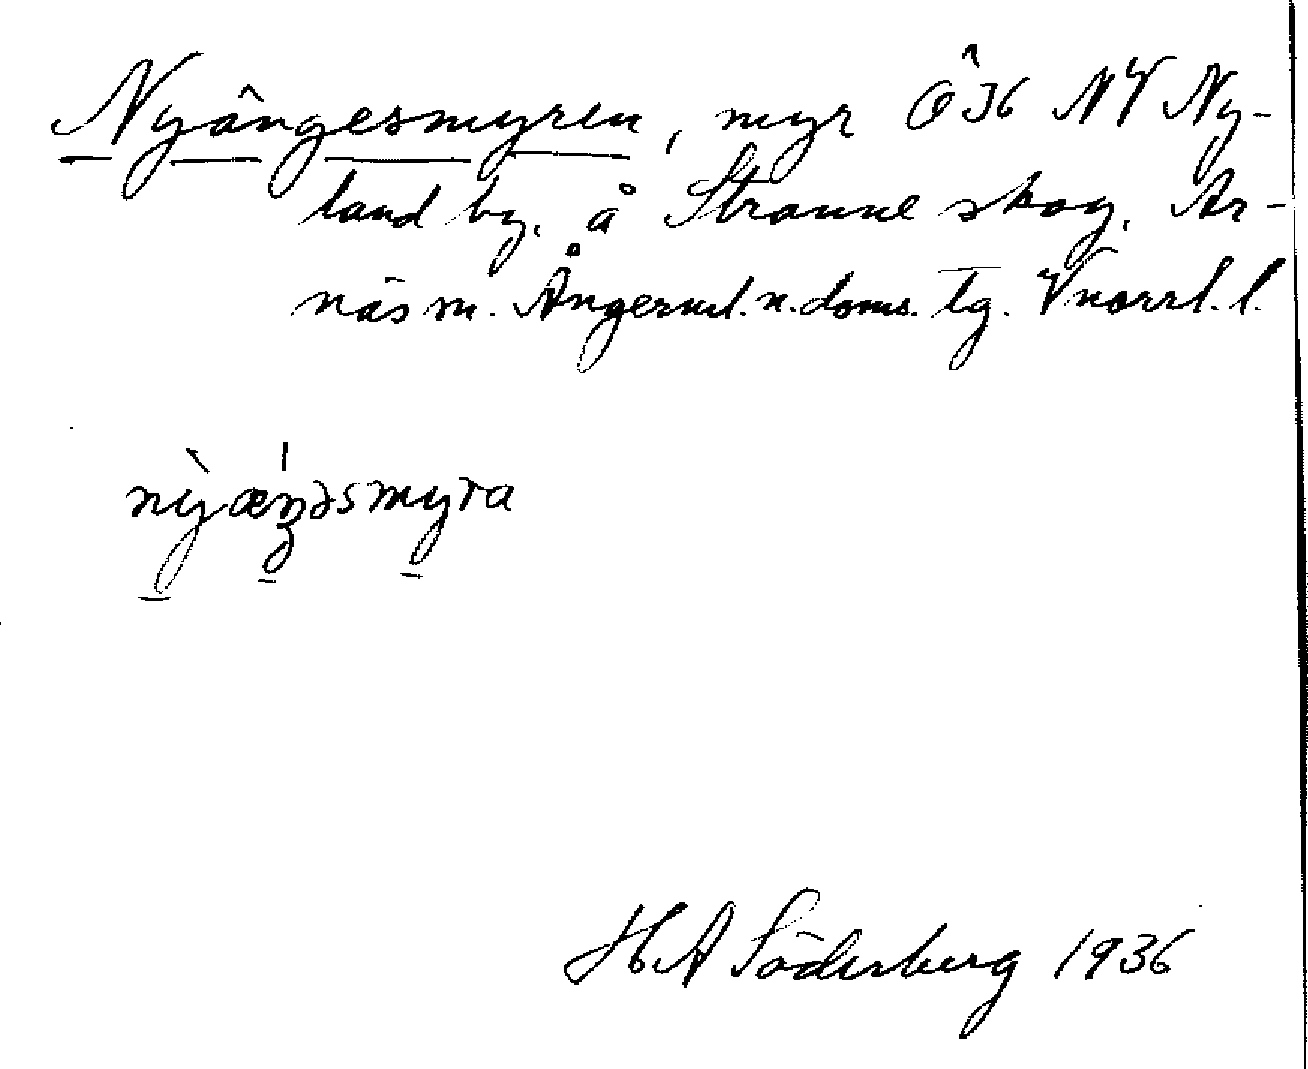 Nyängesmyren, myr Ö 36 NV Ny-
land by, å Stranne skog. Ar-
näs m. Ångerml. n. doms. tg. Vnorrl. l.
nỳæŋəsmyra
H A Söderberg 1936